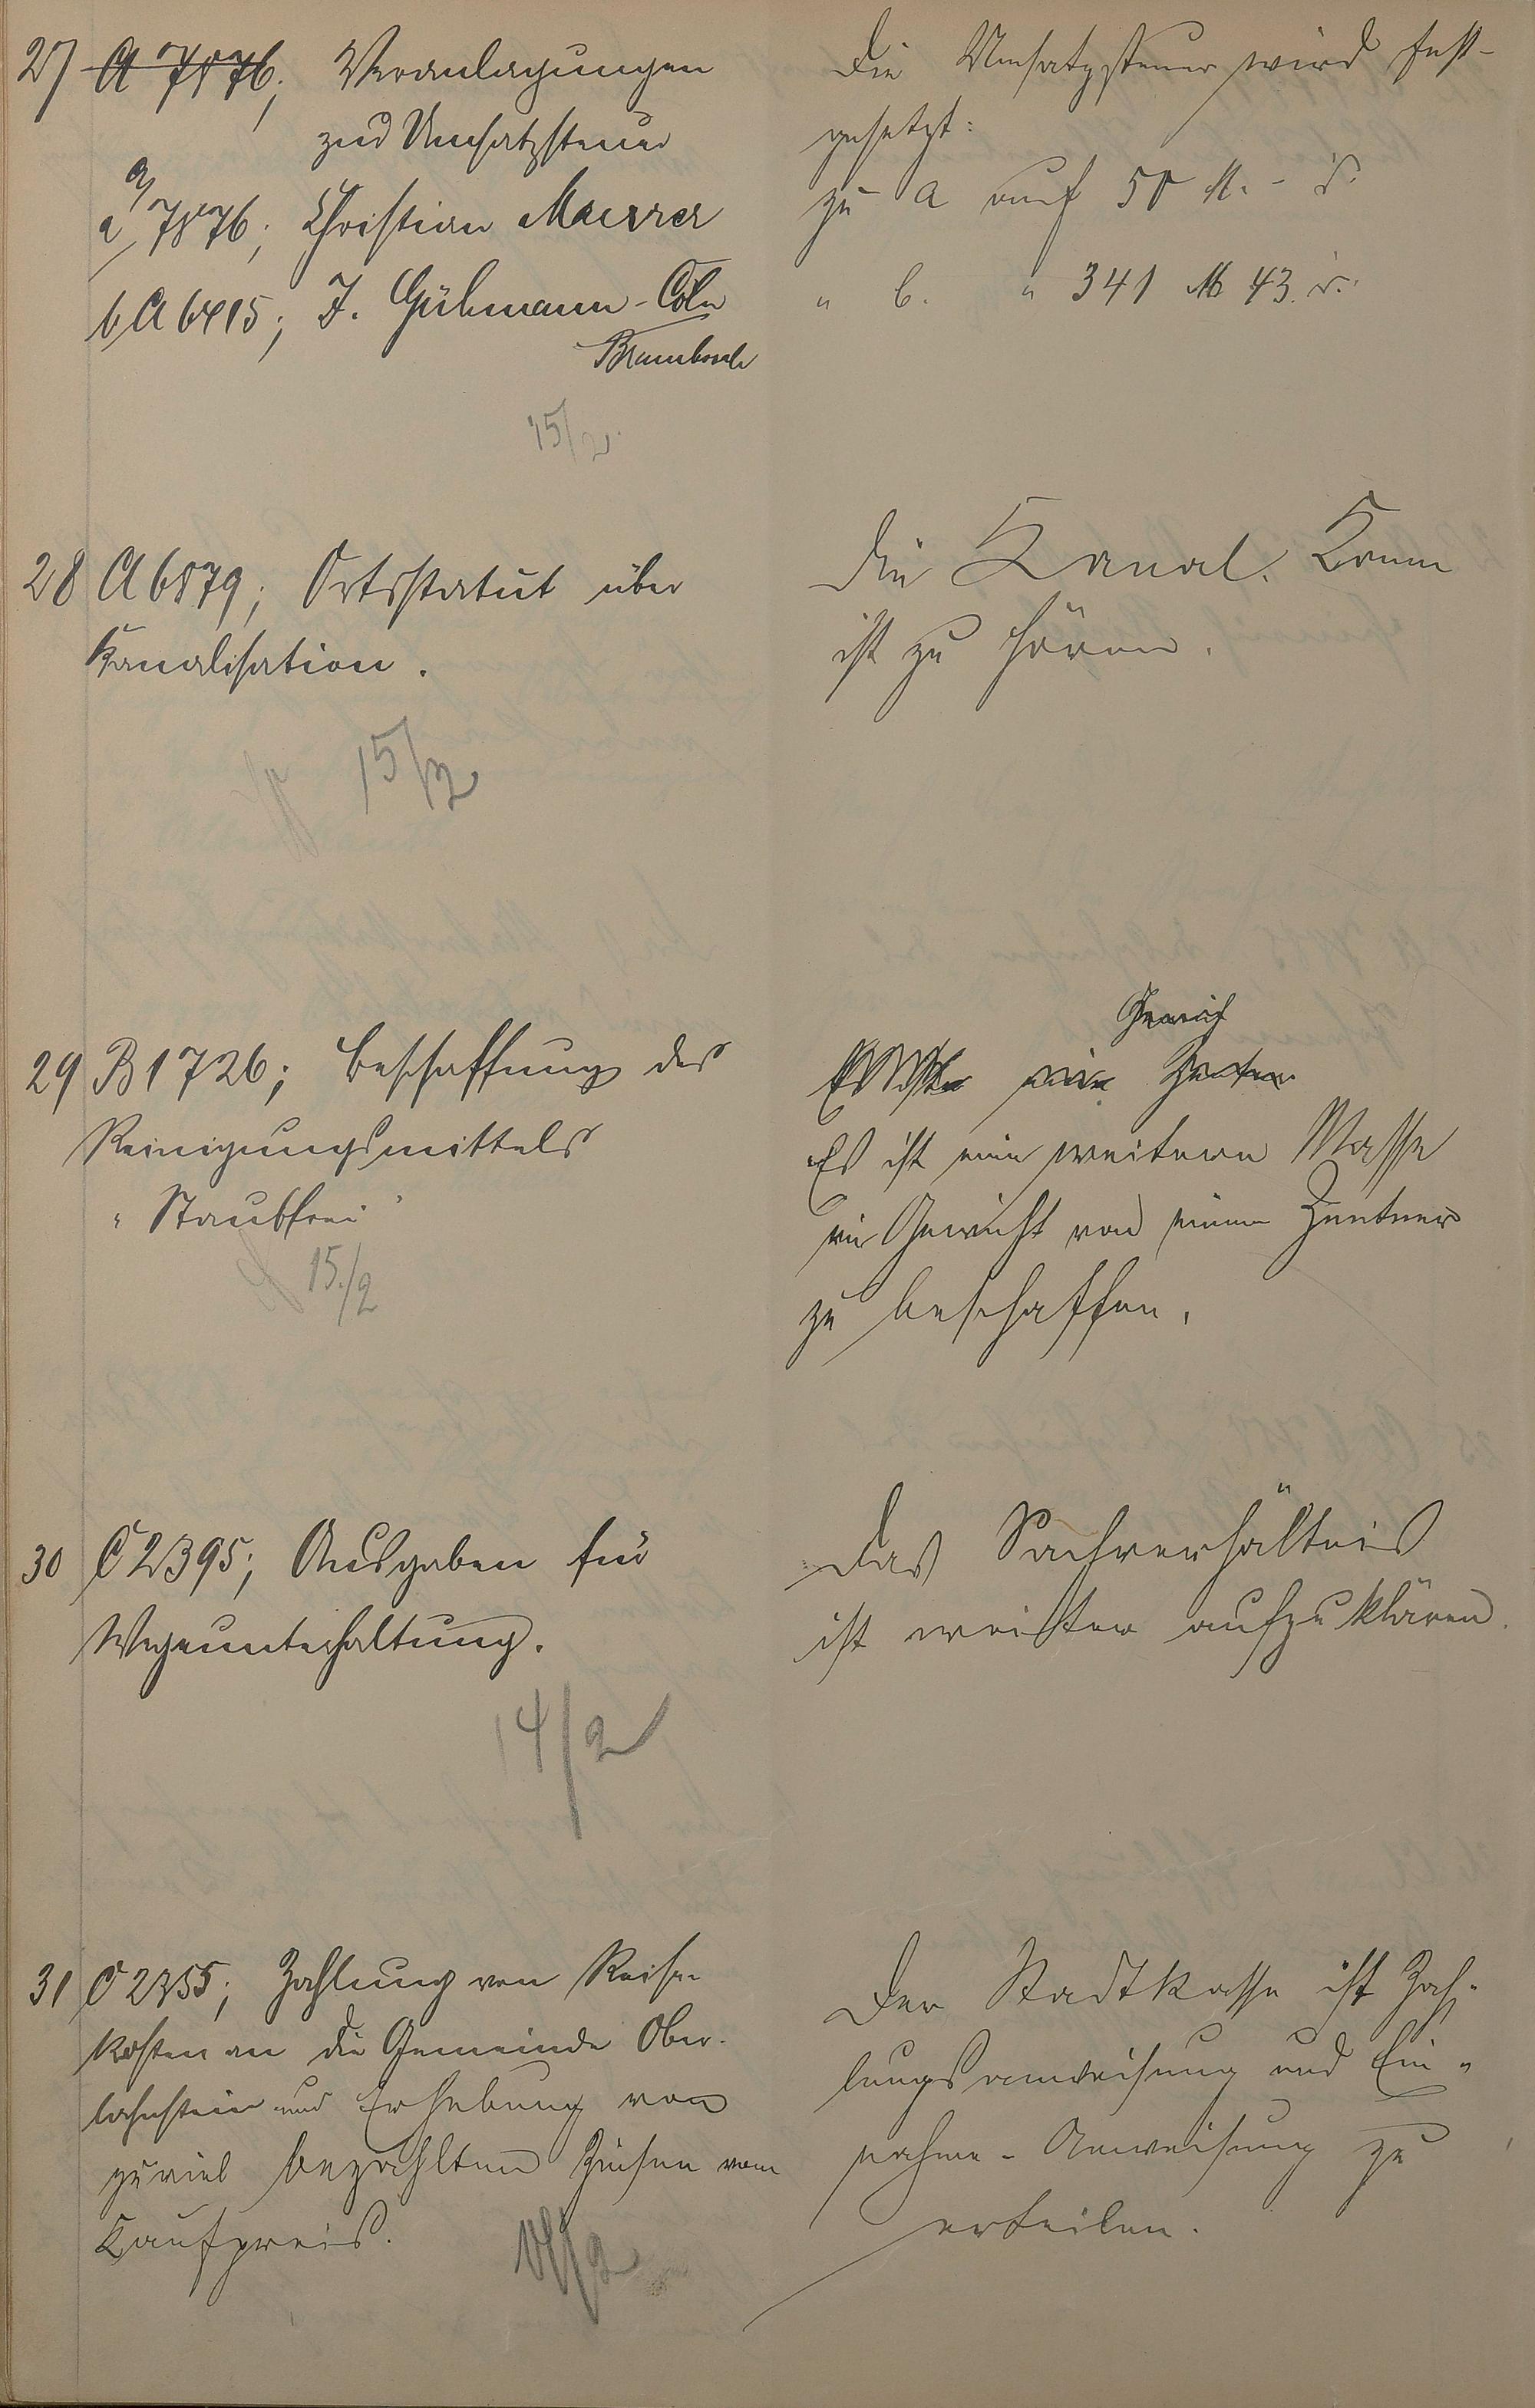 27 A 7876; Veranlagungen
zur Umsatzsteuer
a A 7876; Christian Maurer
b A 6415; J. Gühmann-Cöln
Die Umsatzsteuer wird fest-
gesetzt:
zu a auf 58 M. - ₰.
" b. " 341 M 43 ₰.
15/2.
28 A 6879; Ortsstatut über
Kanalisation.
Die Kanal. Komm
ist zu hören.
15/2
29 B 1726; Beschaffung des
Reinigungsmittels
"Staubfrei"
15./2
Gewich
Es ist eine weitere Masse
im Gewicht von einem Zentner
zu beschaffen.
30 C 2395; Ausgaben für
Wegeunterhaltung.
14/2
Das Sachverhältnis
ist weiter aufzuklären.
31 C 2355; Zahlung von Reise-
kosten an die Gemeinde Ober-
lahnstein und Erhebung von
zuviel bezahlten Zinsen vom
Kaufpreis.
Der Stadtkasse ist Zah-
lungsanweisung und Ein-
nahme-Anweisung zu
erteilen.